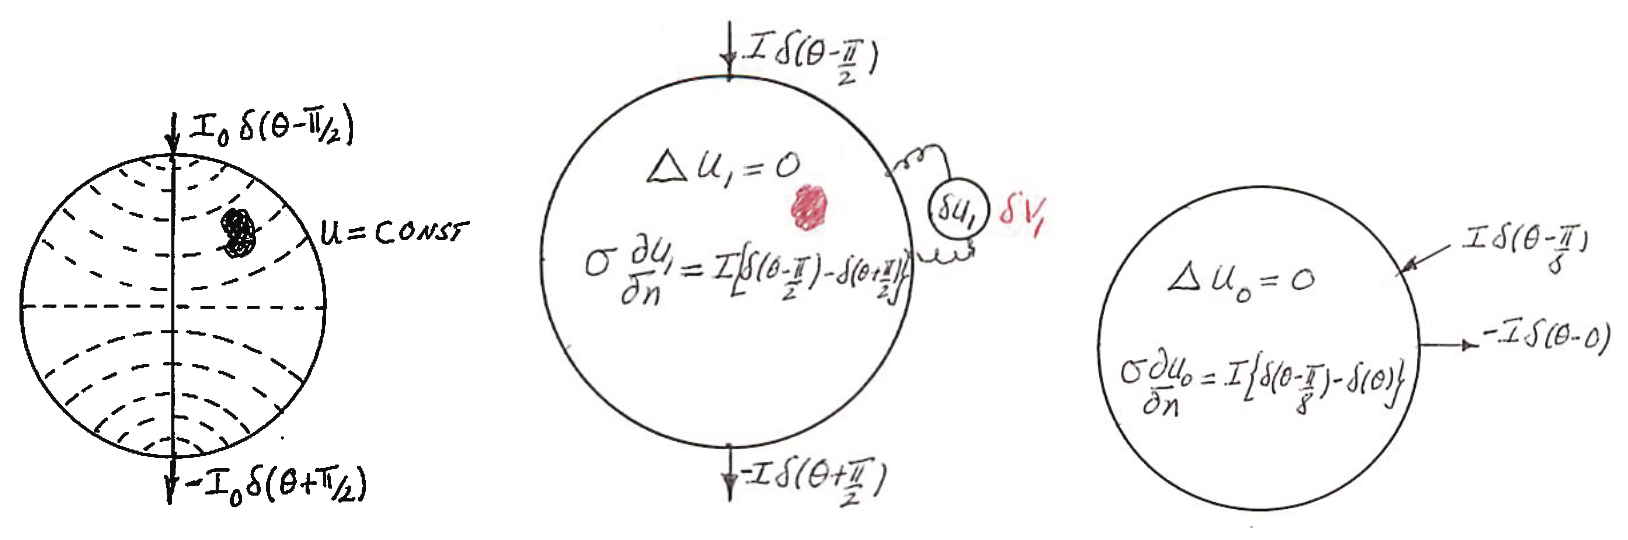 I₀ δ(θ-π/2)
U = CONST
-I₀ δ(θ+π/2)
I δ(θ-π/2)
Δ U₁ = 0
δU₁
δV₁
σ ∂U₁/∂n = I{δ(θ-π/2)-δ(θ+π/2)}
-I δ(θ+π/2)
I δ(θ-π/8)
Δ U₀ = 0
-I δ(θ-0)
σ ∂U₀/∂n = I{δ(θ-π/8)-δ(θ)}